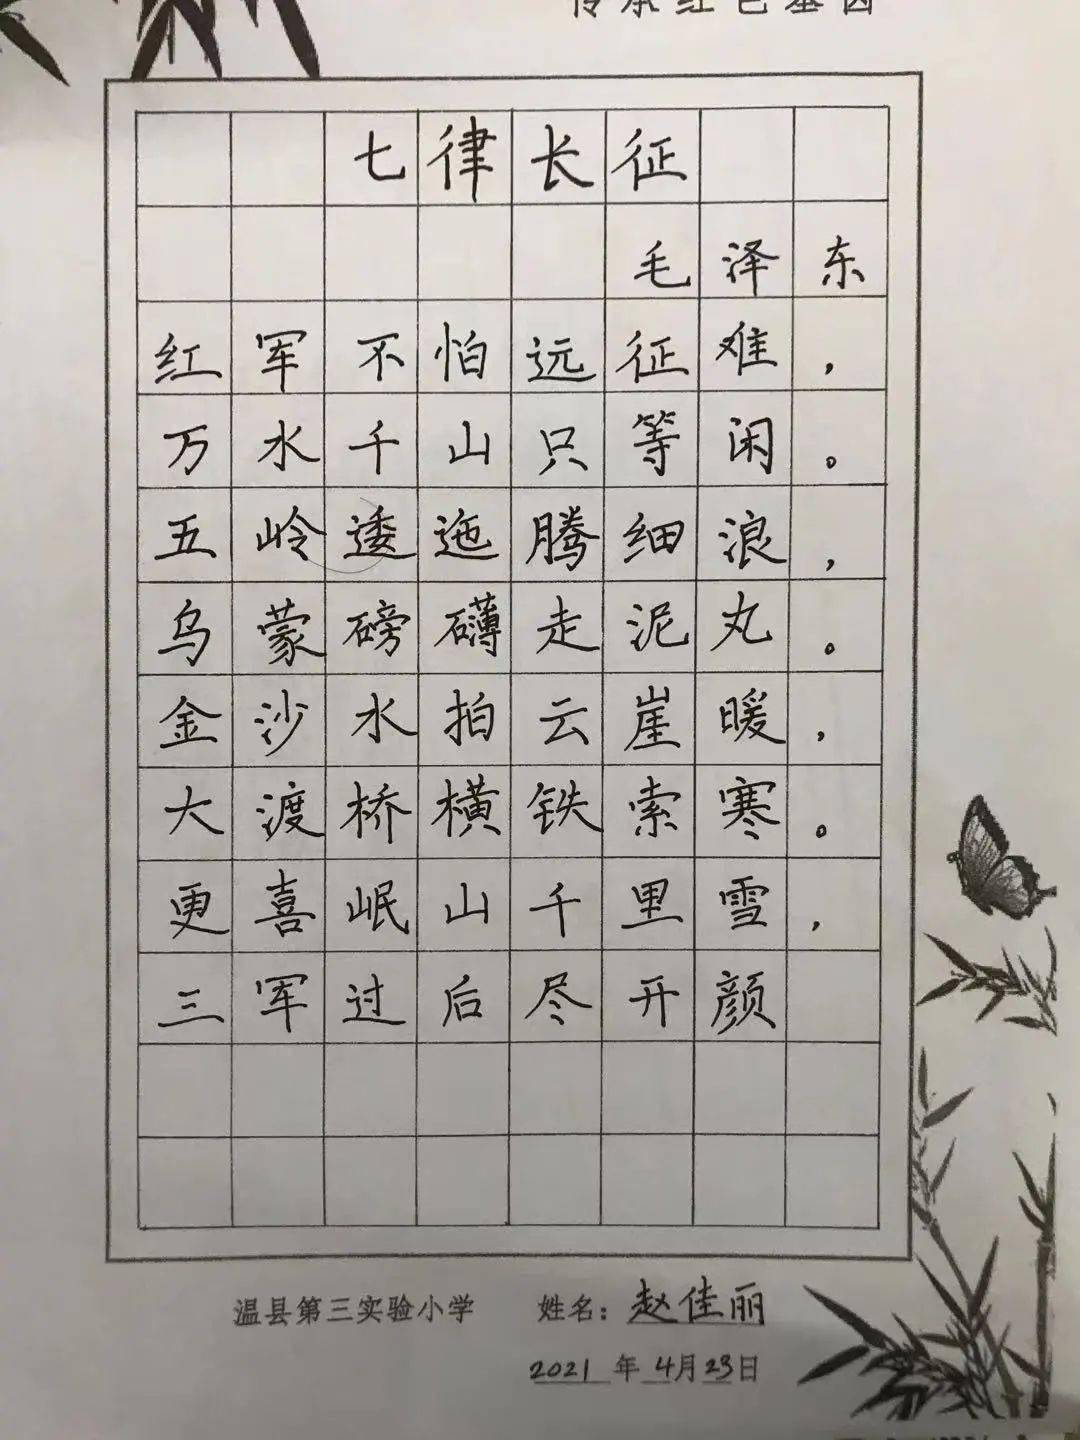 传承红色基因
七律长征
毛泽东
红军不怕远征难，
万水千山只等闲。
五岭逶迤腾细浪，
乌蒙磅礴走泥丸。
金沙水拍云崖暖，
大渡桥横铁索寒。
更喜岷山千里雪，
三军过后尽开颜
温县第三实验小学 姓名：赵佳丽
2021年4月23日